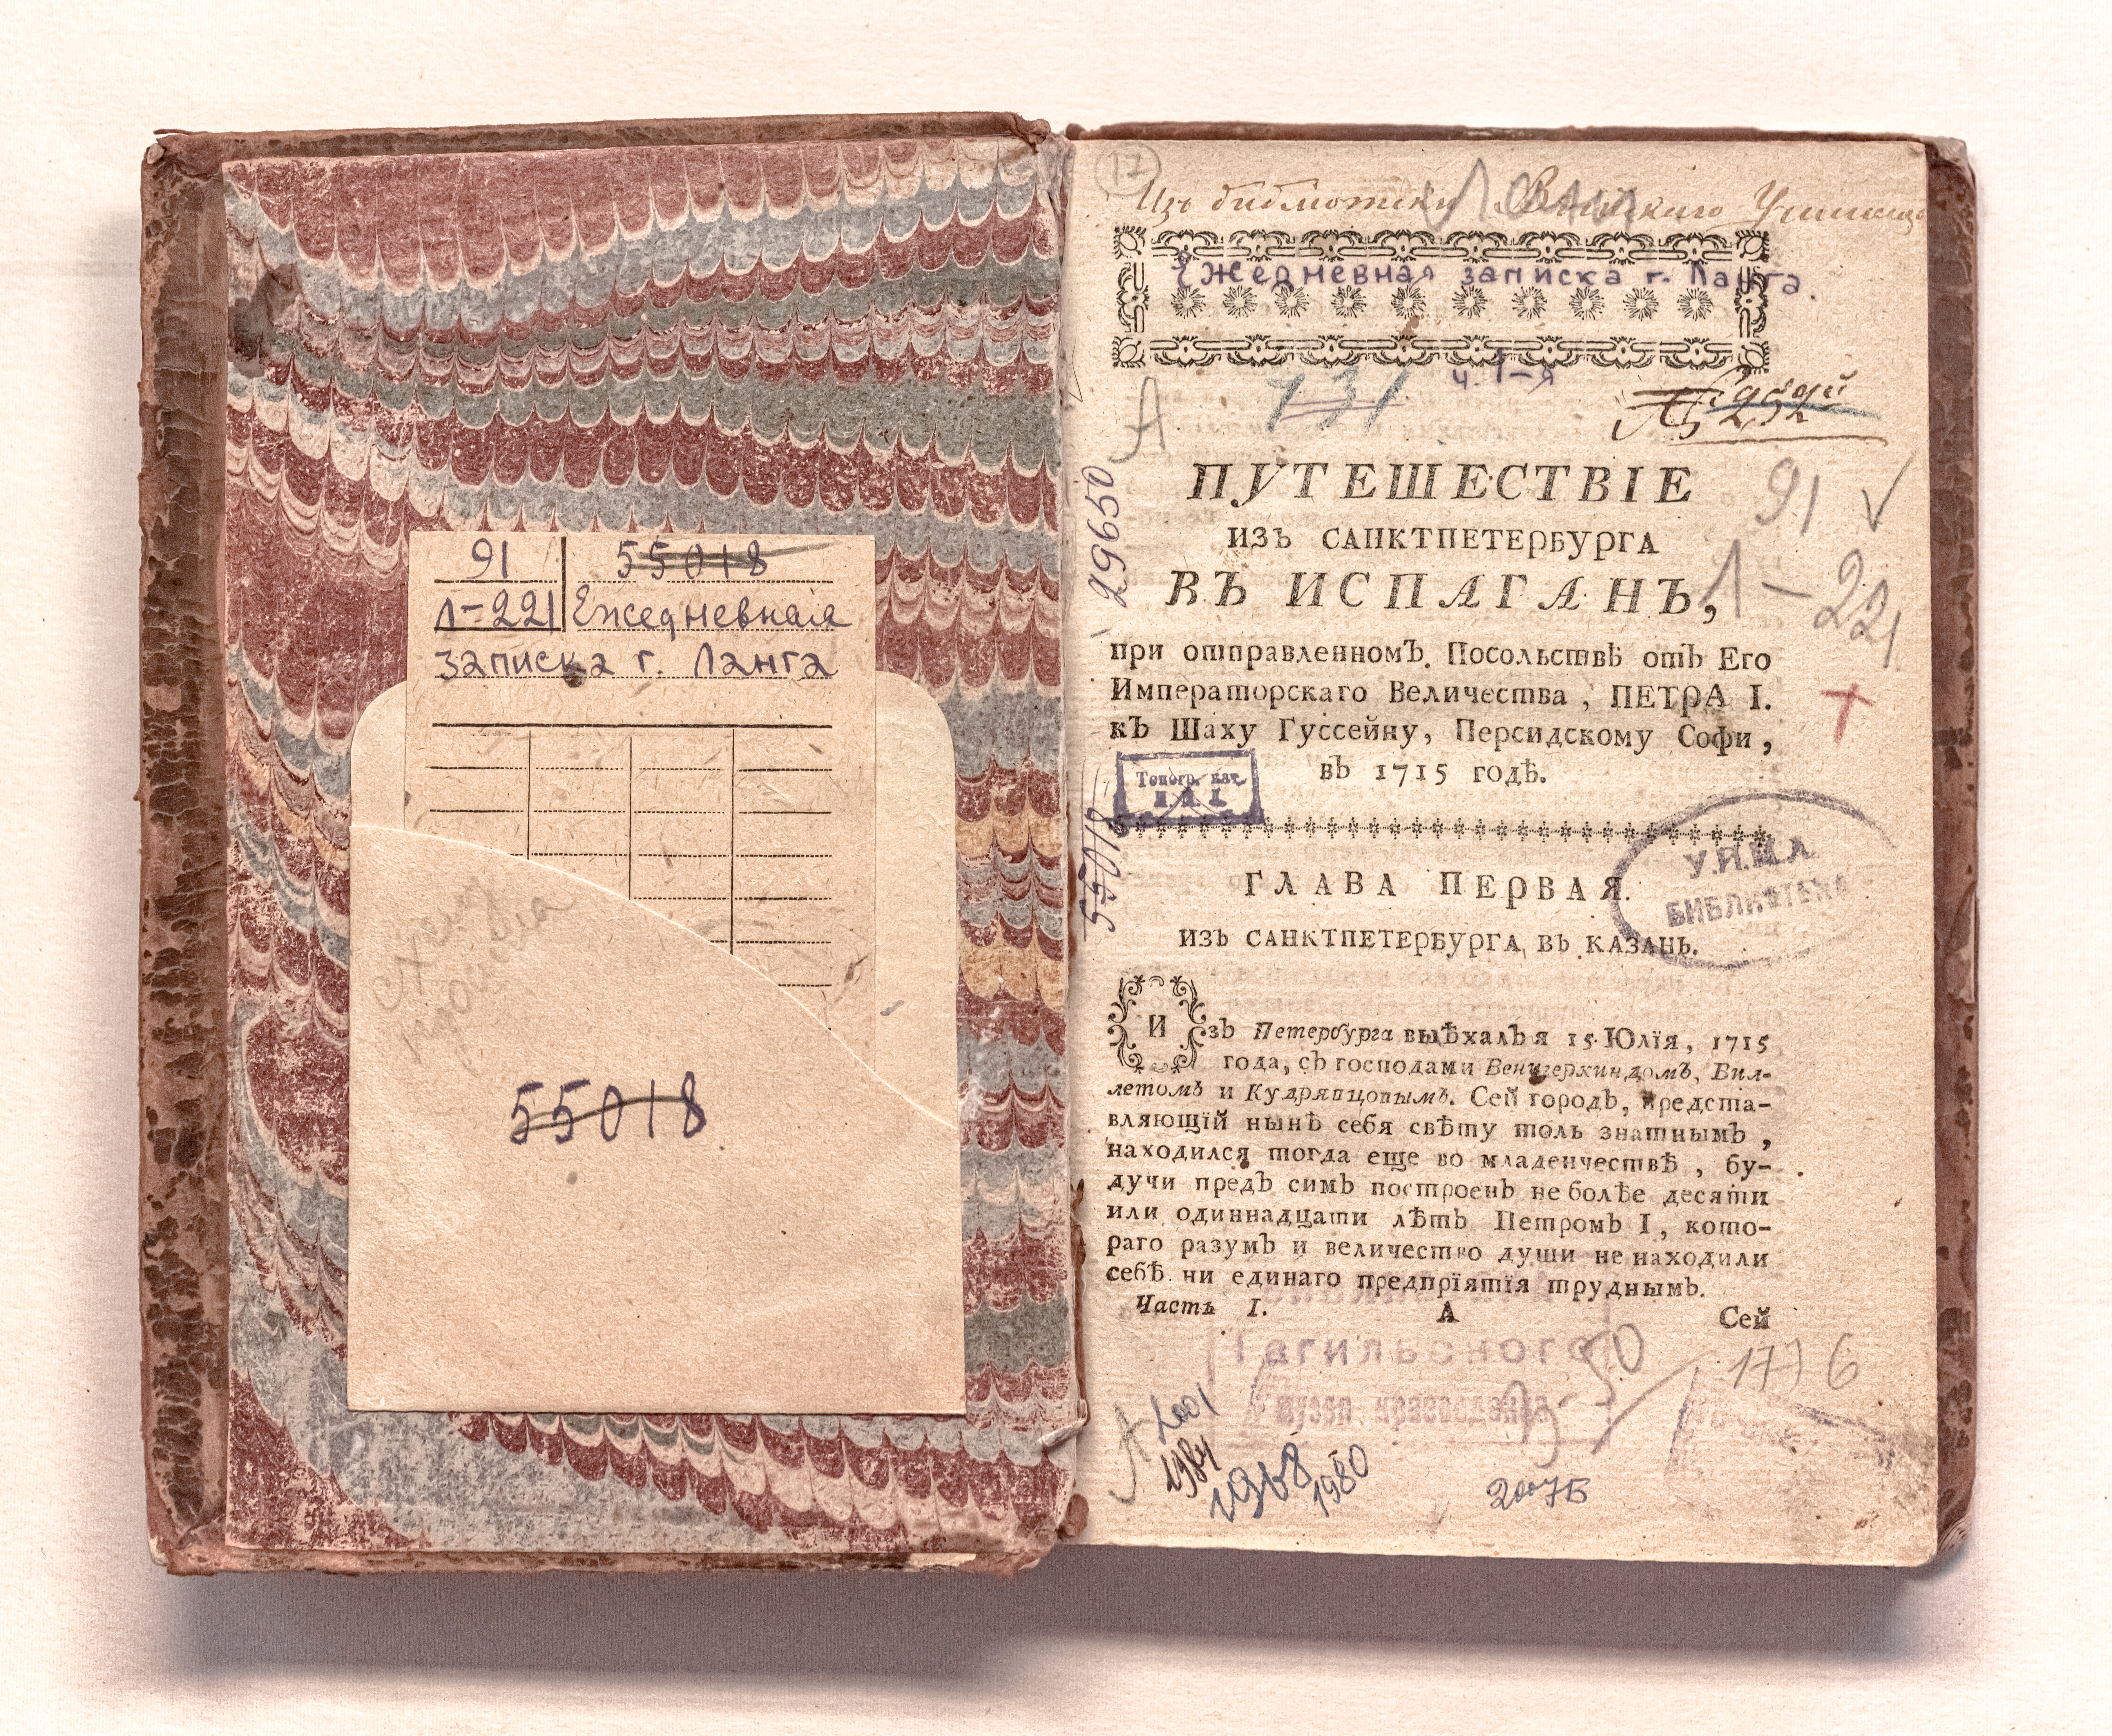 91 55018
Л-221 Ежедневная
записка г. Ланга
55018
17
Изъ библиотеки
Ежедневная записка г. Ланга.
А 731 ч. 1-я
29650
91
Л-221
ПУТЕШЕСТВІЕ
ИЗЪ САНКТПЕТЕРБУРГА
ВЪ ИСПАГАНЪ,
при отправленномЪ Посольствѣ отЪ Его
Императорскаго Величества, ПЕТРА I.
кЪ Шаху Гуссейну, Персидскому Софи,
вЪ 1715 годѣ.
Топогр. кат.
55018
У.Н.Ш.Л
БИБЛИОТЕКА
ГЛАВА ПЕРВАЯ.
ИЗЪ САНКТПЕТЕРБУРГА ВЪ КАЗАНЬ.
ИзЪ Петербурга выѣхалЪ я 15 Юлїя, 1715
года, сЪ господами ВенигеркиндомЪ, Вил-
летомЪ и КудряпцопымЪ. Сей городЪ, предста-
вляющїй нынѣ себя свѣту толь знатнымЪ,
находился тогда еще во младенчествѣ, бу-
дучи предЪ симЪ построенЪ не болѣе десяти
или одиннадцати лѣтЪ ПетромЪ I, кото-
раго разумЪ и величество души не находили
себѣ ни единаго предпрїятїя труднымЪ.
Часть I. А Сей
Тагильского
музея краеведения
1776
А 2001
1984
1968
1980
2007Б